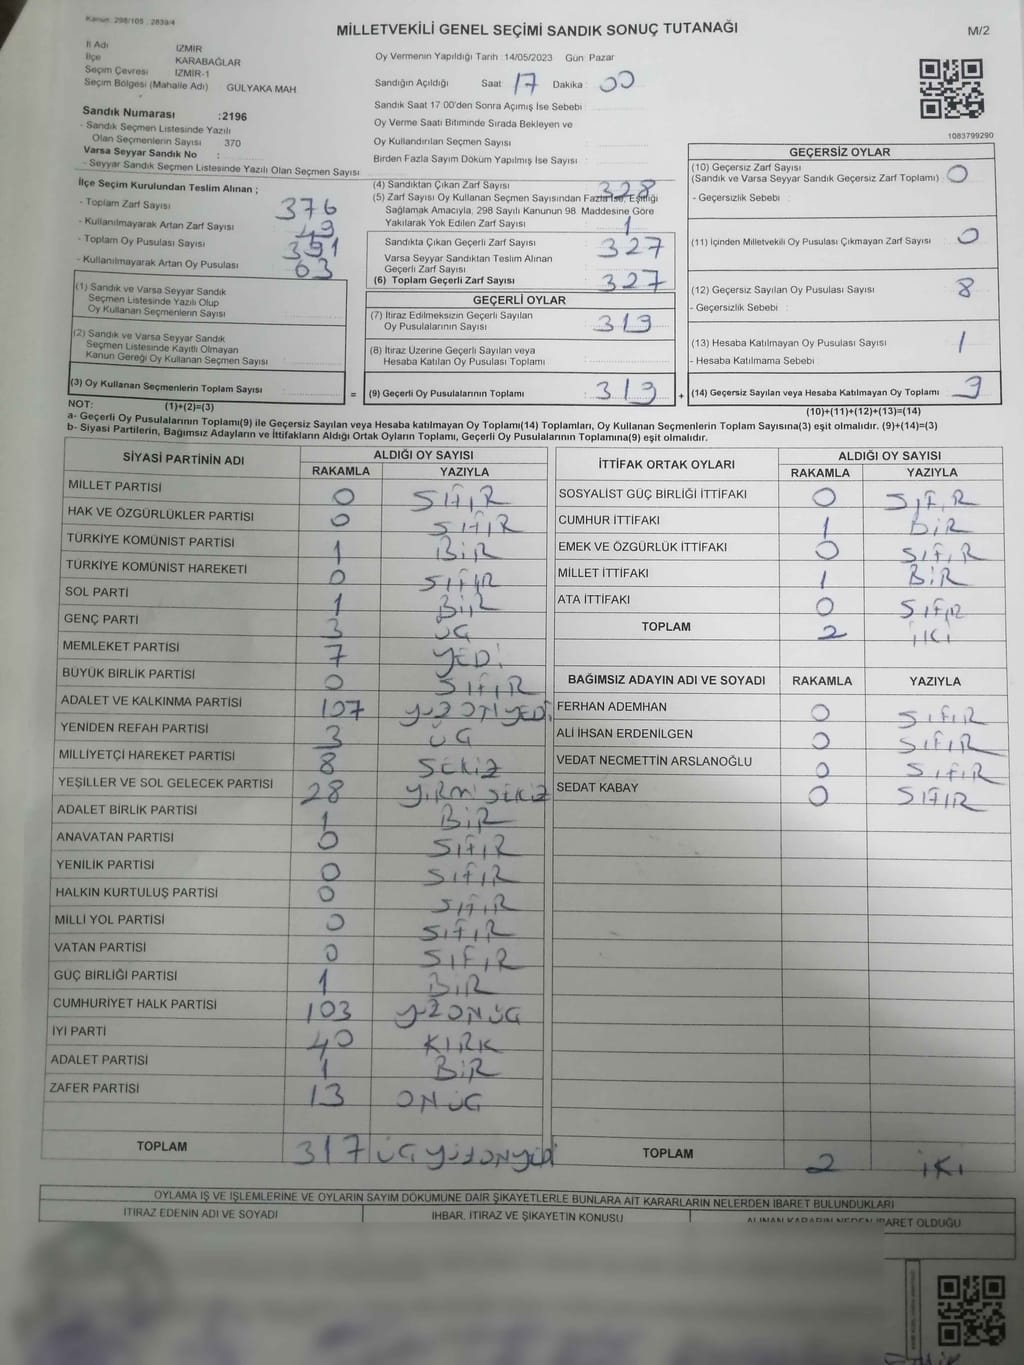 Kanun: 298/105 , 2839/4
MİLLETVEKİLİ GENEL SEÇİMİ SANDIK SONUÇ TUTANAĞI
M/2
İl Adı İZMİR
İlçe KARABAĞLAR
Seçim Çevresi İZMİR-1
Seçim Bölgesi (Mahalle Adı) GÜLYAKA MAH
Oy Vermenin Yapıldığı Tarih :14/05/2023 Gün: Pazar
Sandığın Açıldığı Saat 17 Dakika : 00
Sandık Saat 17:00'den Sonra Açımış İse Sebebi :
Oy Verme Saati Bitiminde Sırada Bekleyen ve
Oy Kullandırılan Seçmen Sayısı :
Birden Fazla Sayım Döküm Yapılmış İse Sayısı :
1083799290
Sandık Numarası :2196
- Sandık Seçmen Listesinde Yazılı
Olan Seçmenlerin Sayısı 370
Varsa Seyyar Sandık No :
- Seyyar Sandık Seçmen Listesinde Yazılı Olan Seçmen Sayısı
İlçe Seçim Kurulundan Teslim Alınan ;
- Toplam Zarf Sayısı 376
- Kullanılmayarak Artan Zarf Sayısı 49
- Toplam Oy Pusulası Sayısı 391
- Kullanılmayarak Artan Oy Pusulası 63
(1) Sandık ve Varsa Seyyar Sandık
Seçmen Listesinde Yazılı Olup
Oy Kullanan Seçmenlerin Sayısı
(2) Sandık ve Varsa Seyyar Sandık
Seçmen Listesinde Kayıtlı Olmayan
Kanun Gereği Oy Kullanan Seçmen Sayısı
(3) Oy Kullanan Seçmenlerin Toplam Sayısı
(1)+(2)=(3)
(4) Sandıktan Çıkan Zarf Sayısı 328
(5) Zarf Sayısı Oy Kullanan Seçmen Sayısından Fazla İse, Eşitliği
Sağlamak Amacıyla, 298 Sayılı Kanunun 98. Maddesine Göre
Yakılarak Yok Edilen Zarf Sayısı 1
Sandıkta Çıkan Geçerli Zarf Sayısı 327
Varsa Seyyar Sandıktan Teslim Alınan
Geçerli Zarf Sayısı
(6) Toplam Geçerli Zarf Sayısı 327
GEÇERLİ OYLAR
(7) İtiraz Edilmeksizin Geçerli Sayılan
Oy Pusulalarının Sayısı : 319
(8) İtiraz Üzerine Geçerli Sayılan veya
Hesaba Katılan Oy Pusulası Toplamı
= (9) Geçerli Oy Pusulalarının Toplamı 319
GEÇERSİZ OYLAR
(10) Geçersiz Zarf Sayısı
(Sandık ve Varsa Seyyar Sandık Geçersiz Zarf Toplamı) 0
- Geçersizlik Sebebi :
(11) İçinden Milletvekili Oy Pusulası Çıkmayan Zarf Sayısı 0
(12) Geçersiz Sayılan Oy Pusulası Sayısı 8
- Geçersizlik Sebebi :
(13) Hesaba Katılmayan Oy Pusulası Sayısı 1
- Hesaba Katılmama Sebebi :
+ (14) Geçersiz Sayılan veya Hesaba Katılmayan Oy Toplamı 9
(10)+(11)+(12)+(13)=(14)
NOT:
a- Geçerli Oy Pusulalarının Toplamı(9) ile Geçersiz Sayılan veya Hesaba katılmayan Oy Toplamı(14) Toplamları, Oy Kullanan Seçmenlerin Toplam Sayısına(3) eşit olmalıdır. (9)+(14)=(3)
b- Siyasi Partilerin, Bağımsız Adayların ve İttifakların Aldığı Ortak Oyların Toplamı, Geçerli Oy Pusulalarının Toplamına(9) eşit olmalıdır.
SİYASİ PARTİNİN ADI ALDIĞI OY SAYISI
RAKAMLA YAZIYLA
MİLLET PARTİSİ 0 SIFIR
HAK VE ÖZGÜRLÜKLER PARTİSİ 0 SIFIR
TÜRKİYE KOMÜNİST PARTİSİ 1 BİR
TÜRKİYE KOMÜNİST HAREKETİ 0 SIFIR
SOL PARTİ 1 BİR
GENÇ PARTİ 3 ÜÇ
MEMLEKET PARTİSİ 7 YEDİ
BÜYÜK BİRLİK PARTİSİ 0 SIFIR
ADALET VE KALKINMA PARTİSİ 107
YENİDEN REFAH PARTİSİ 3 ÜÇ
MİLLİYETÇİ HAREKET PARTİSİ 8 SEKİZ
YEŞİLLER VE SOL GELECEK PARTİSİ 28 YİRMİ SEKİZ
ADALET BİRLİK PARTİSİ 1 BİR
ANAVATAN PARTİSİ 0 SIFIR
YENİLİK PARTİSİ 0 SIFIR
HALKIN KURTULUŞ PARTİSİ 0 SIFIR
MİLLİ YOL PARTİSİ 0 SIFIR
VATAN PARTİSİ 0 SIFIR
GÜÇ BİRLİĞİ PARTİSİ 1 BİR
CUMHURİYET HALK PARTİSİ 103 YÜZ ONÜÇ
İYİ PARTİ 40 KIRK
ADALET PARTİSİ 1 BİR
ZAFER PARTİSİ 13 ONÜÇ
TOPLAM 317 ÜÇYÜZONYEDİ
İTTİFAK ORTAK OYLARI ALDIĞI OY SAYISI
RAKAMLA YAZIYLA
SOSYALİST GÜÇ BİRLİĞİ İTTİFAKI 0 SIFIR
CUMHUR İTTİFAKI 1 BİR
EMEK VE ÖZGÜRLÜK İTTİFAKI 0 SIFIR
MİLLET İTTİFAKI 1 BİR
ATA İTTİFAKI 0 SIFIR
TOPLAM 2 İKİ
BAĞIMSIZ ADAYIN ADI VE SOYADI RAKAMLA YAZIYLA
FERHAN ADEMHAN 0 SIFIR
ALİ İHSAN ERDENİLGEN 0 SIFIR
VEDAT NECMETTİN ARSLANOĞLU 0 SIFIR
SEDAT KABAY 0 SIFIR
TOPLAM 2 İKİ
OYLAMA İŞ VE İŞLEMLERİNE VE OYLARIN SAYIM DÖKÜMÜNE DAİR ŞİKAYETLERLE BUNLARA AİT KARARLARIN NELERDEN İBARET BULUNDUKLARI
İTİRAZ EDENİN ADI VE SOYADI
İHBAR, İTİRAZ VE ŞİKAYETİN KONUSU
ALINAN KARARIN NEDEN İBARET OLDUĞU